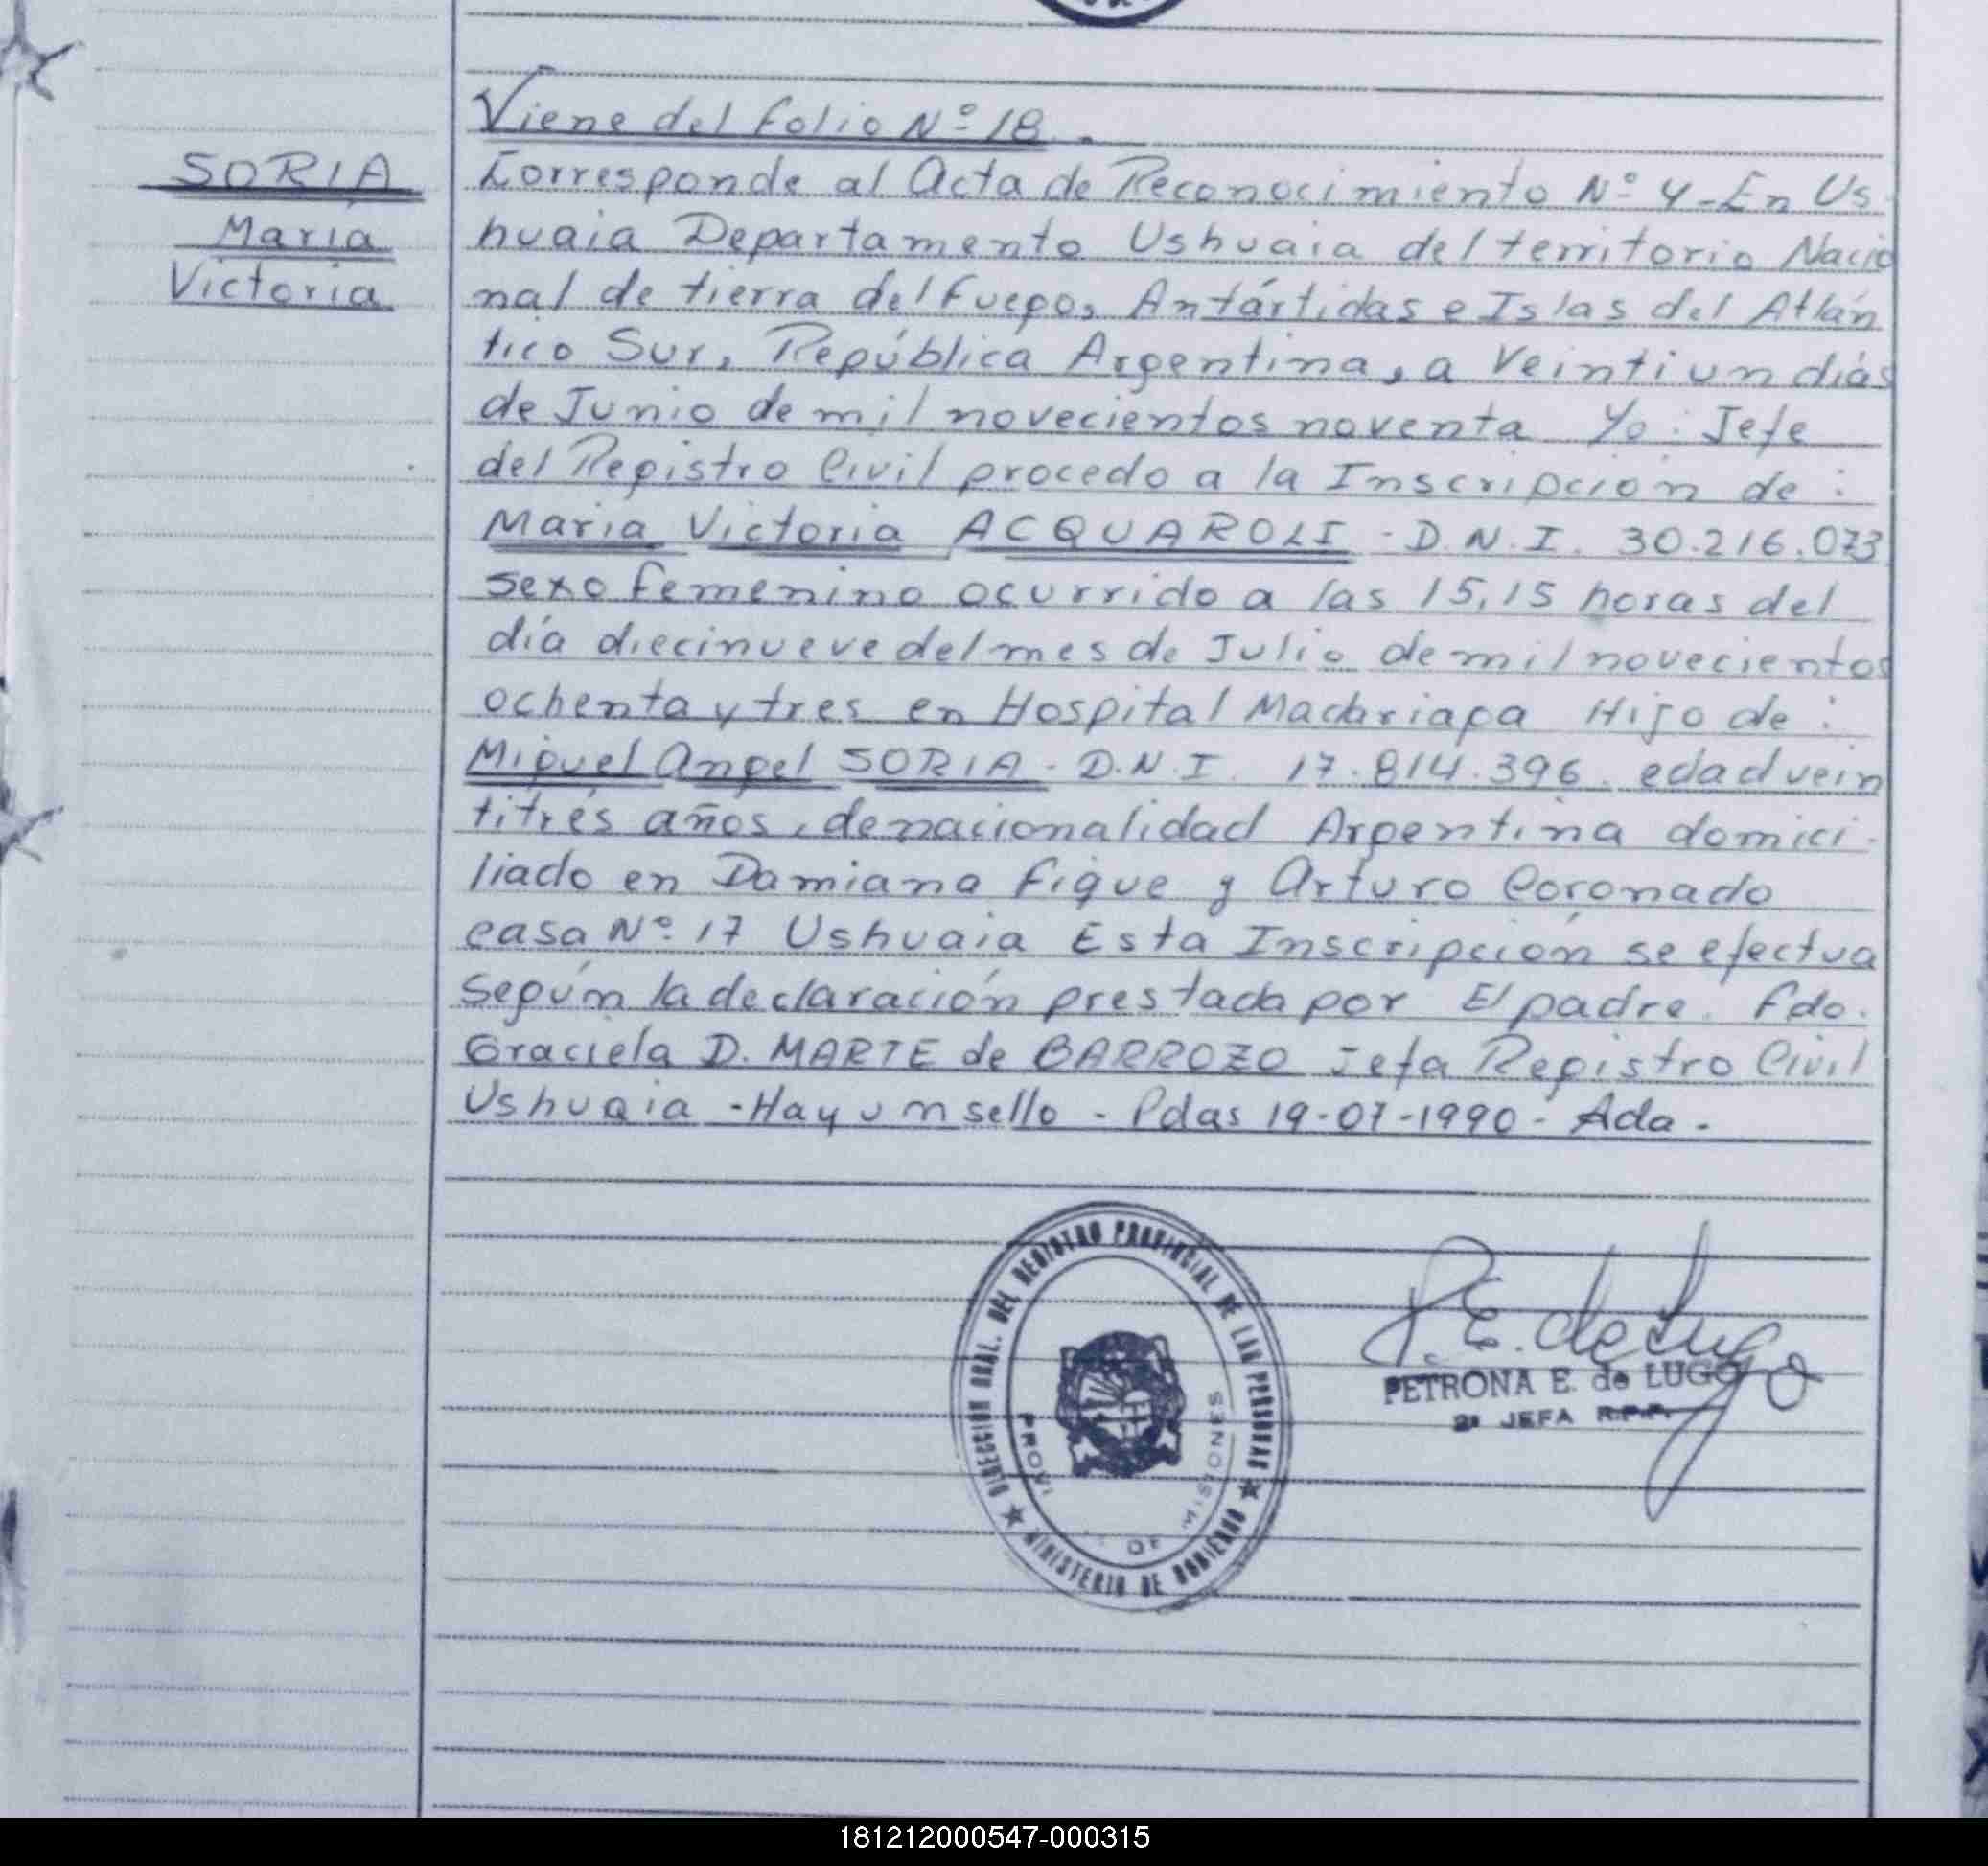 Viene del folio Nº 18.
SORIA
María
Victoria
Corresponde al Acta de Reconocimiento Nº 4-En Us
huaia Departamento Ushuaia del territorio Nacio
nal de tierra del Fuego, Antártidas e Islas del Atlán
tico Sur, República Argentina, a Veintiun días
de Junio de mil novecientos noventa Yo: Jefe
del Registro Civil procedo a la Inscripción de:
Maria Victoria ACQUAROLI - D.N.I. 30.216.073
sexo femenino ocurrido a las 15,15 horas del
día diecinueve del mes de Julio de mil novecientos
ochenta y tres en Hospital Madariaga Hijo de:
Miguel Angel SORIA - D.N.I. 17.814.396. edad vein
titrés años, de nacionalidad Argentina domici-
liado en Damiana Fique y Arturo Coronado
casa Nº 17 Ushuaia Esta Inscripción se efectua
según la declaración prestada por El padre. Fdo.
Graciela D. MARTE de BARROZO Jefa Registro Civil
Ushuaia - Hay un sello - Pdas 19-07-1990 - Ada.
DIRECCION GRAL. DEL REGISTRO PROVINCIAL DE LAS PERSONAS
MINISTERIO DE GOBIERNO
PROVI DE MISIONES
P. E. de Lugo
PETRONA E. de LUGO
2ª JEFA R.P.P.
181212000547-000315